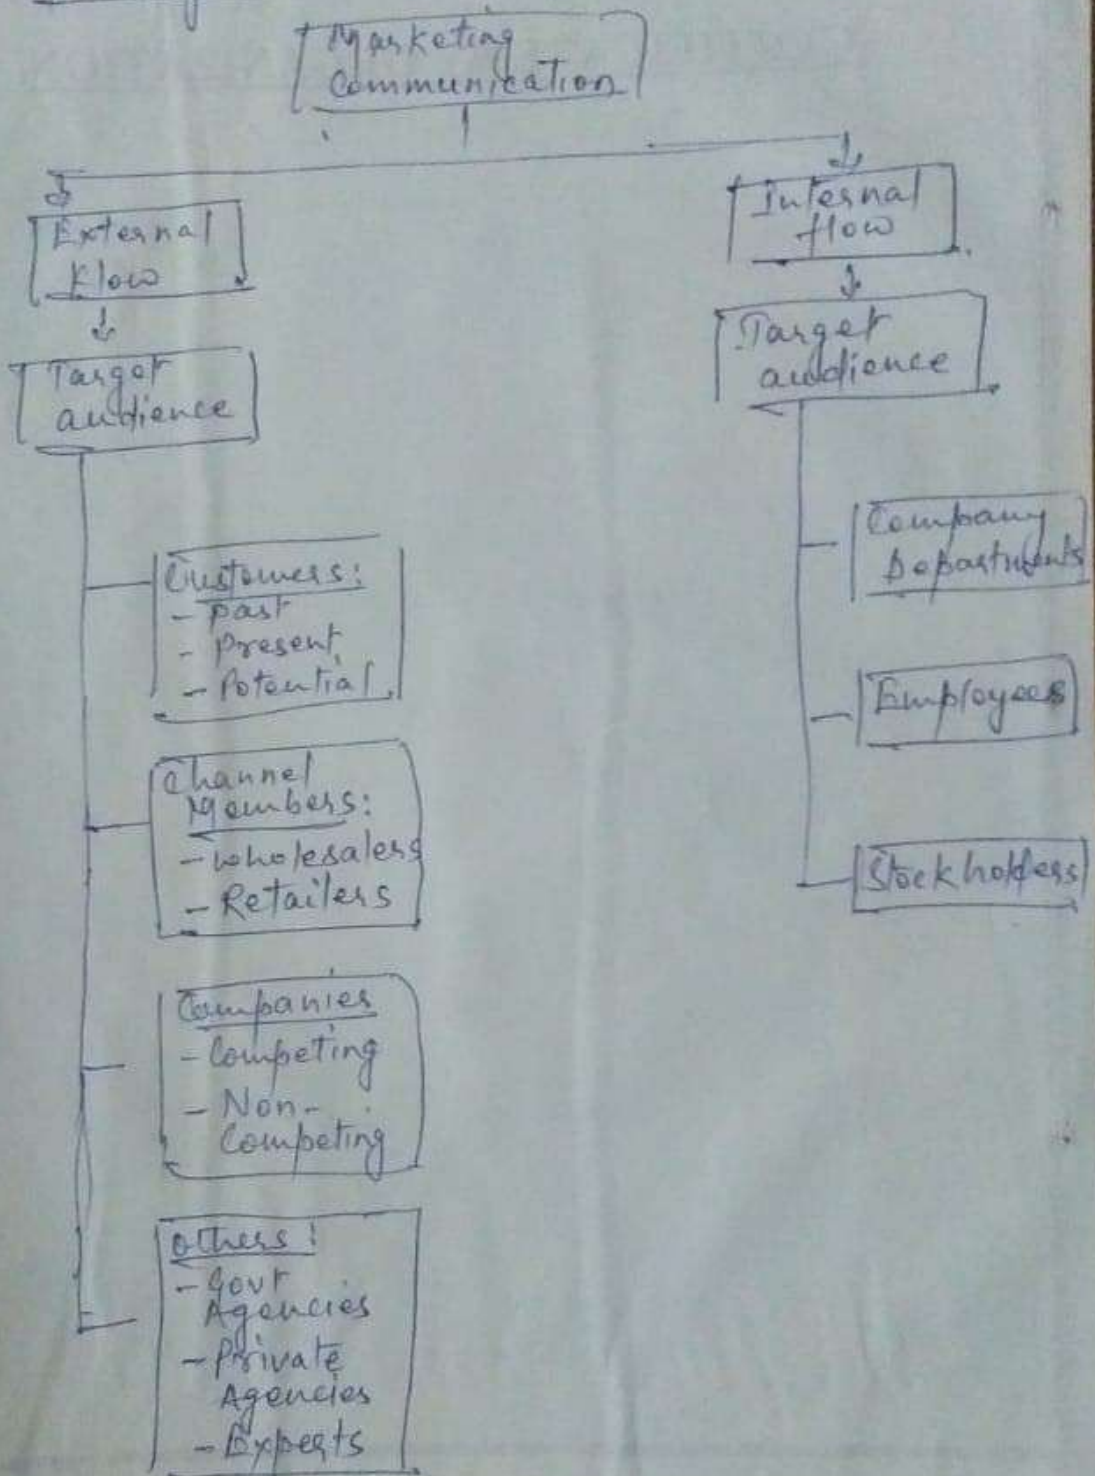 Marketing
Communication
External
Flow
Target
audience
Customers:
- past
- Present
- Potential
Channel
Members:
- wholesalers
- Retailers
Companies
- Competing
- Non-
Competing
others:
- Govt
Agencies
- Private
Agencies
- Experts
Internal
flow
Target
audience
Company
Departments
Employees
Stockholders